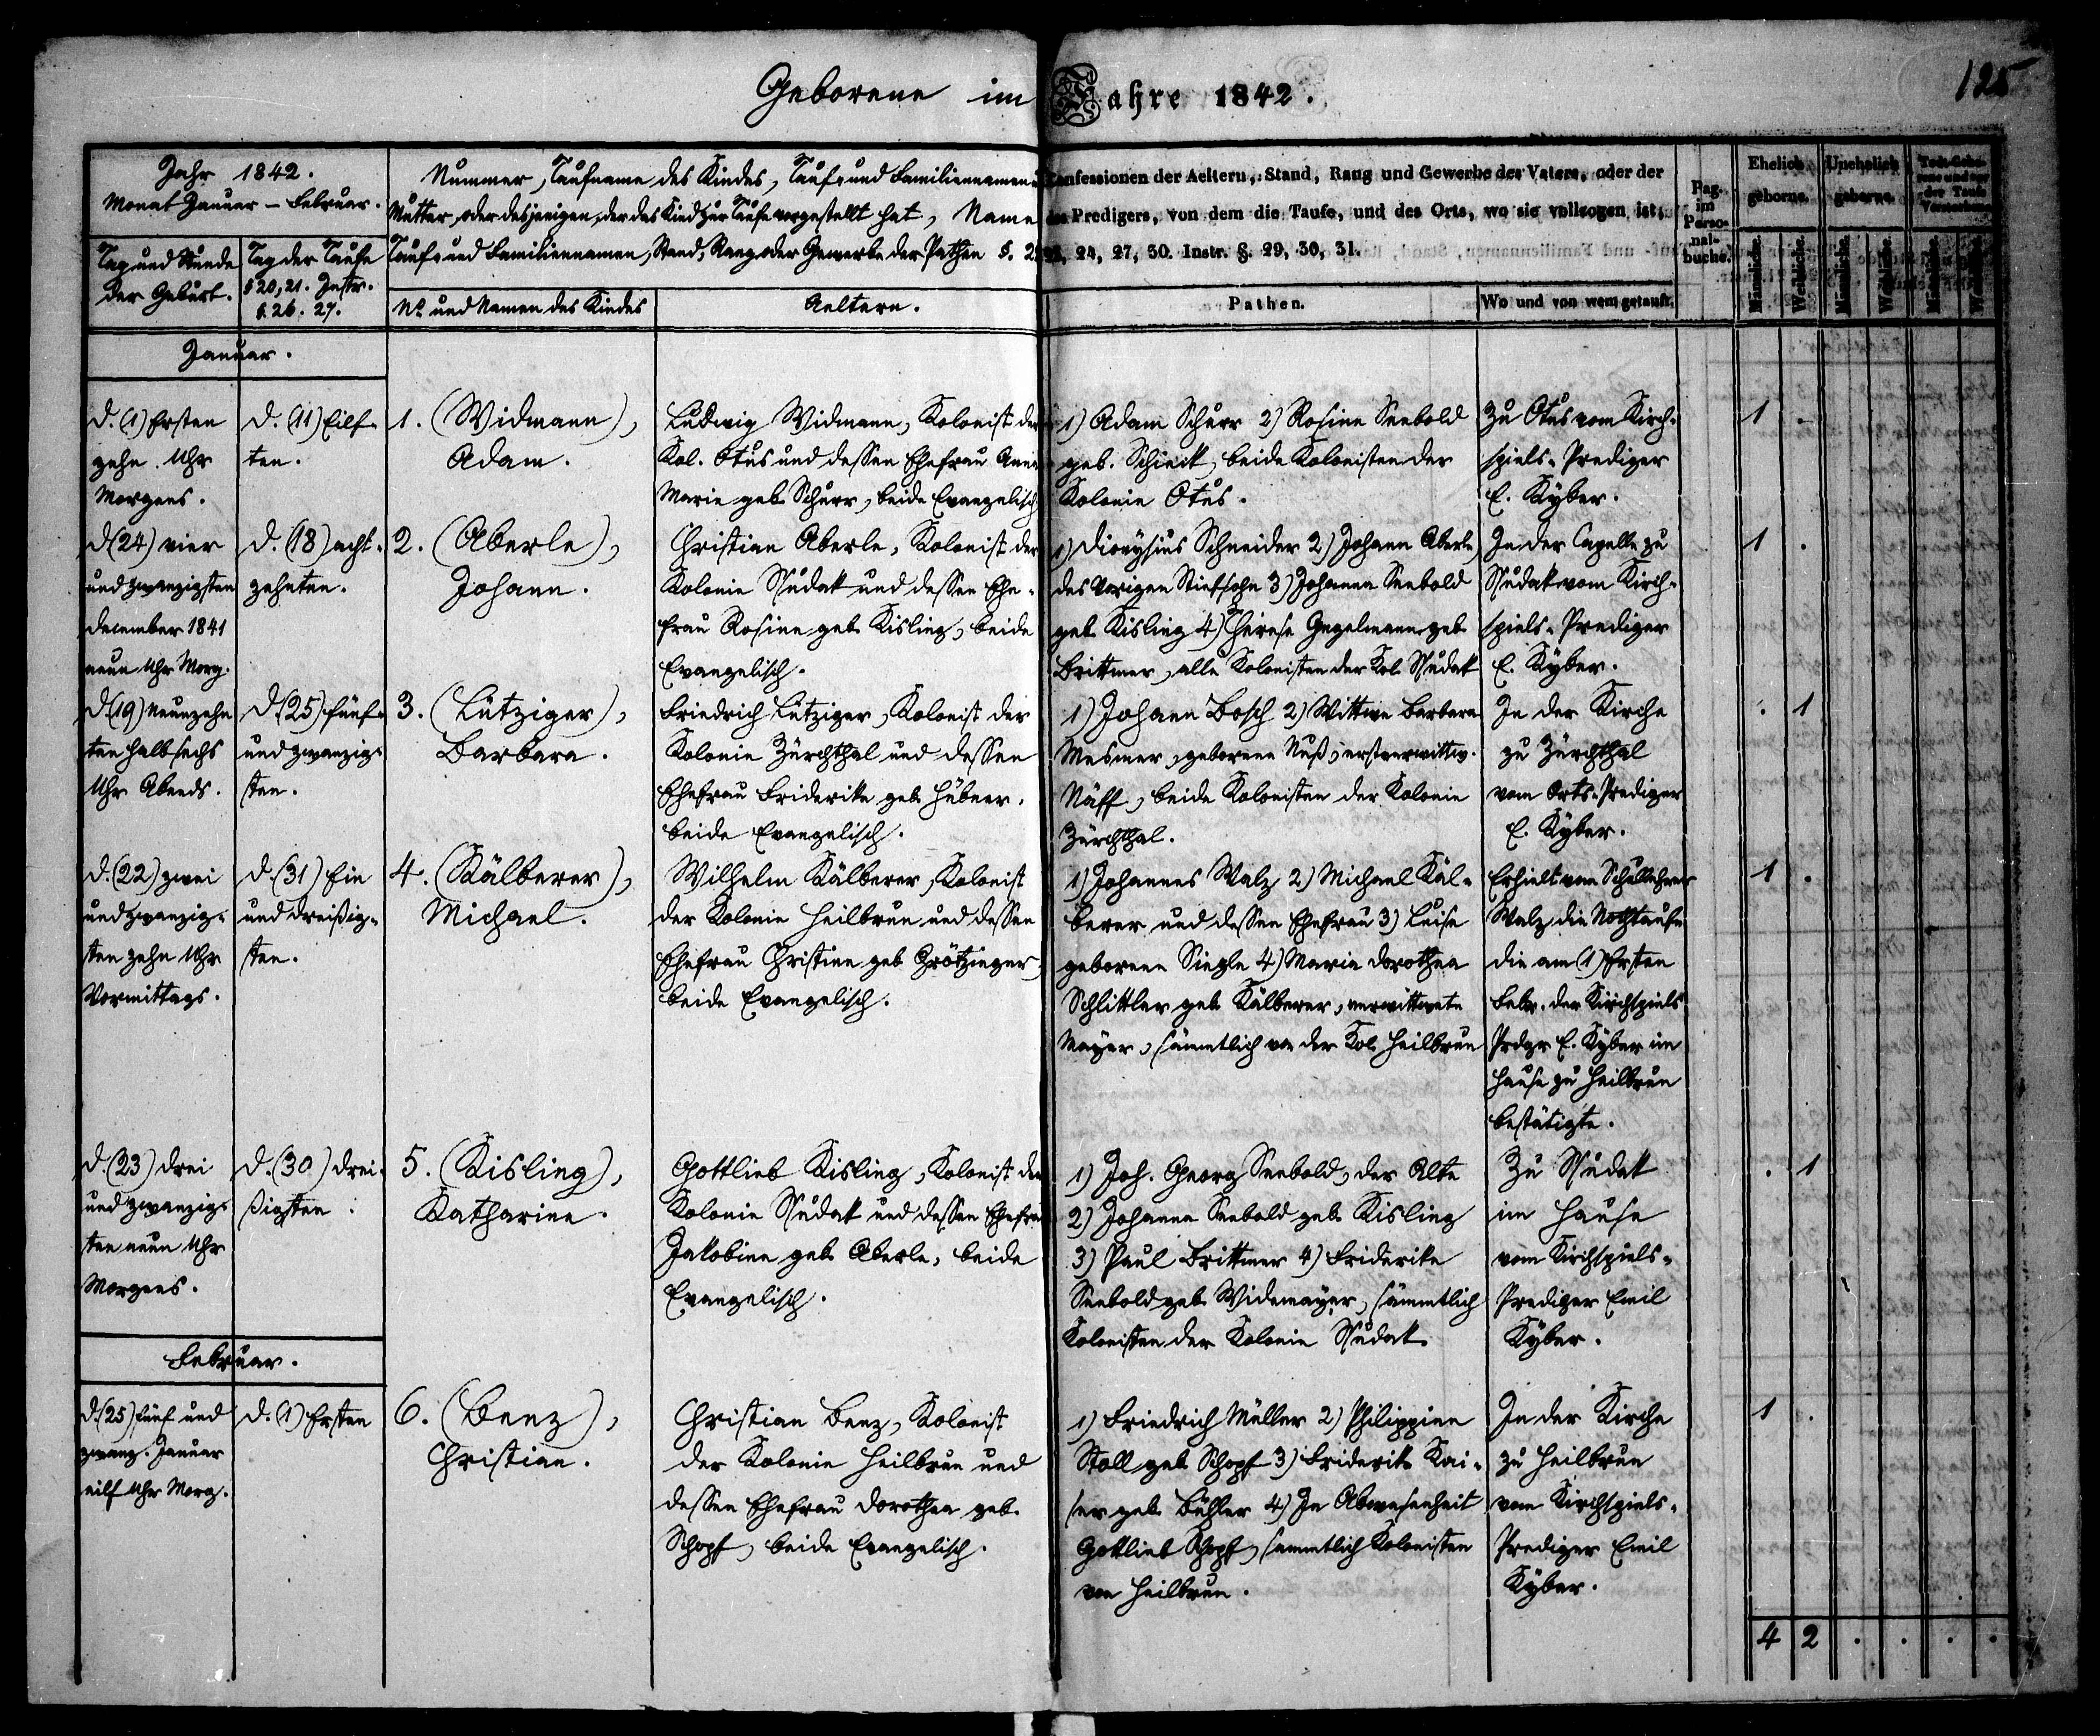 125
Geborene im Jahre 1842.
Jahr 1842.
Monat Januar – Februar.
Tag und Stunde
der Geburt.
Tag der Taufe
§ 20, 21. Instr.
§. 26. 27.
Nummer, Taufname des Kindes, Tauf- und Familiennamen
Mutter, oder desjenigen, der das Kind zur Taufe vorgestellt hat, Name
Tauf- und Familiennamen, Stand, Rang oder Gewerbe der Pathen §.
Confessionen der Aeltern, Stand, Rang und Gewerbe des Vaters, oder der
des Predigers, von dem die Taufe, und des Orts, wo sie vollzogen ist,
24, 27, 30. Instr. §. 29, 30, 31.
No und Namen des Kindes
Aeltern.
Pathen.
Wo und von wem getauft.
Pag.
im
Perso-
nal-
buche.
Ehelich
geborne.
Unehelich
geborne.
Todt-Gebo-
rene und vor
der Taufe
Verstorbene
Männliche.
Weibliche.
Männliche.
Weibliche.
Männliche.
Weibliche.
Januar.
d. (1) Ersten
zehn Uhr
Morgens.
d. (11) Eilf-
ten.
1. (Widmann),
Adam.
Ludwig Widmann, Kolonist der
Kol. Otus und dessen Ehefrau Anna
Marie geb. Schurr, beide Evangelisch
1) Adam Schurr 2) Rosine Seebold
geb. Schieck, beide Kolonisten der
Kolonie Otus.
Zu Otus vom Kirch-
spiels-Prediger
E. Kyber.
1 .
d (24) vier
und zwanzigsten
December 1841
neun Uhr Morg.
d. (18) acht-
zehnten.
2. (Aberle),
Johann.
Christian Aberle, Kolonist der
Kolonie Sudak und dessen Ehe-
frau Rosine geb. Kisling, beide
Evangelisch.
1) Dionysius Schneider 2) Johann Aberle
des Vorigen Stiefsohn 3) Johanna Seebold
geb. Kisling 4) Therese Gegelmann geb.
Brittmer, alle Kolonisten der Kol. Sudak
In der Capelle zu
Sudak vom Kirch-
spiels-Prediger
E. Kyber.
1 .
d (19) Neunzehn
ten halb sechs
Uhr Abends.
d. (25) fünf
und zwanzig-
sten.
3. (Lutziger),
Barbara.
Friedrich Lutziger, Kolonist der
Kolonie Zürchthal und dessen
Ehefrau Friderike geb. Hübner,
beide Evangelisch.
1) Johann Bosch 2) Wittwe Barbara
Mesmer, geborene Nuß, erstverwittw.
Näff, beide Kolonisten der Kolonie
Zürchthal.
In der Kirche
zu Zürchthal
vom Orts-Prediger
E. Kyber.
. 1
d. (22) zwei
und zwanzig-
sten zehn Uhr
Vormittags.
d. (31) Ein
und dreißig-
sten.
4. (Kälberer),
Michael.
Wilhelm Kälberer, Kolonist
der Kolonie Heilbrun und dessen
Ehefrau Christine geb. Grötzinger,
beide Evangelisch.
1) Johannes Walz 2) Michael Käl-
berer und dessen Ehefrau 3) Luise
geborene Siegle 4) Maria Dorothea
Schlittler geb. Kälberer, verwittwete
Mayer, sämmtlich von der Kol. Heilbrun
Erhielt vom Schullehrer
Walz die Nothtaufe
die am (1) Ersten
Febr. der Kirchspiels
Prdgr E. Kyber im
Hause zu Heilbrun
bestätigte.
1 .
d. (23) drei
und zwanzig-
sten neun Uhr
Morgens.
d. (30) drei-
ßigsten.
5. (Kisling),
Katharine.
Gottlieb Kisling, Kolonist der
Kolonie Sudak und dessen Ehefrau
Jakobine geb. Aberle, beide
Evangelisch.
1) Joh. Georg Seebold, der Alte
2) Johanna Seebold geb. Kisling
3) Paul Brittmer 4) Friderike
Seebold geb. Widmayer, sämmtlich
Kolonisten der Kolonie Sudak.
Zu Sudak
im Hause
vom Kirchspiels-
Prediger Emil
Kyber.
. 1
Februar.
d. (25) fünf und
zwanz. Januar
eilf Uhr Morg.
d. (1) Ersten
6. (Benz),
Christian.
Christian Benz, Kolonist
der Kolonie Heilbrun und
dessen Ehefrau Dorothea geb.
Schopf, beide Evangelisch.
1) Friedrich Müller 2) Philippine
Stoll geb. Schopf 3) Friderike Kai-
ser geb. Bühler 4) In Abwesenheit
Gottlieb Schopf, sämmtlich Kolonisten
von Heilbrun.
In der Kirche
zu Heilbrun
vom Kirchspiels-
Prediger Emil
Kyber.
1 .
4 2 . . . .